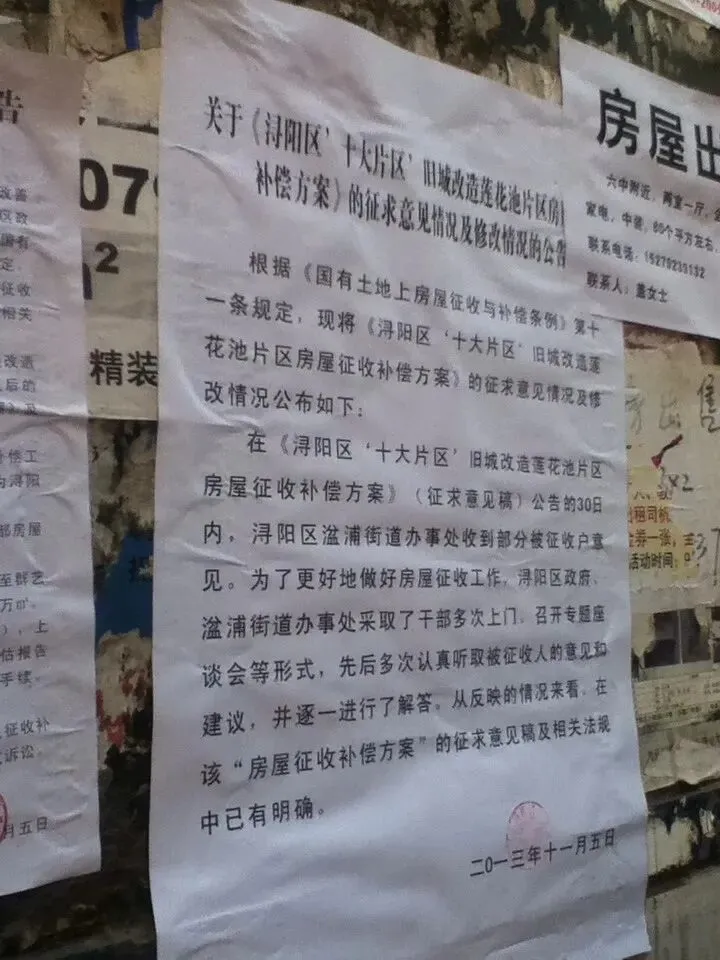 关于《浔阳区'十大片区'旧城改造莲花池片区房
补偿方案》的征求意见情况及修改情况的公告
根据《国有土地上房屋征收与补偿条例》第十
一条规定，现将《浔阳区'十大片区'旧城改造莲
花池片区房屋征收补偿方案》的征求意见情况及修
改情况公布如下：
在《浔阳区'十大片区'旧城改造莲花池片区
房屋征收补偿方案》（征求意见稿）公告的30日
内，浔阳区湓浦街道办事处收到部分被征收户意
见。为了更好地做好房屋征收工作，浔阳区政府、
湓浦街道办事处采取了干部多次上门、召开专题座
谈会等形式，先后多次认真听取被征收人的意见和
建议，并逐一进行了解答。从反映的情况来看，在
该“房屋征收补偿方案”的征求意见稿及相关法规
中已有明确。
二0一三年十一月五日
告
改善
区政
国有
定，
征收
相关
改造
后的
》及
补偿工
为浔阳
部房屋
至群艺
万㎡。
），上
估报告
手续，
征收补
诉讼。
月五日
079
²
精装
房屋出
六中附近，两室一厅，
家电，中装，80个平方左右，
联系电话：15279230132
联系人：盖女士
出售
出租司机
金券一张，
活动时间：